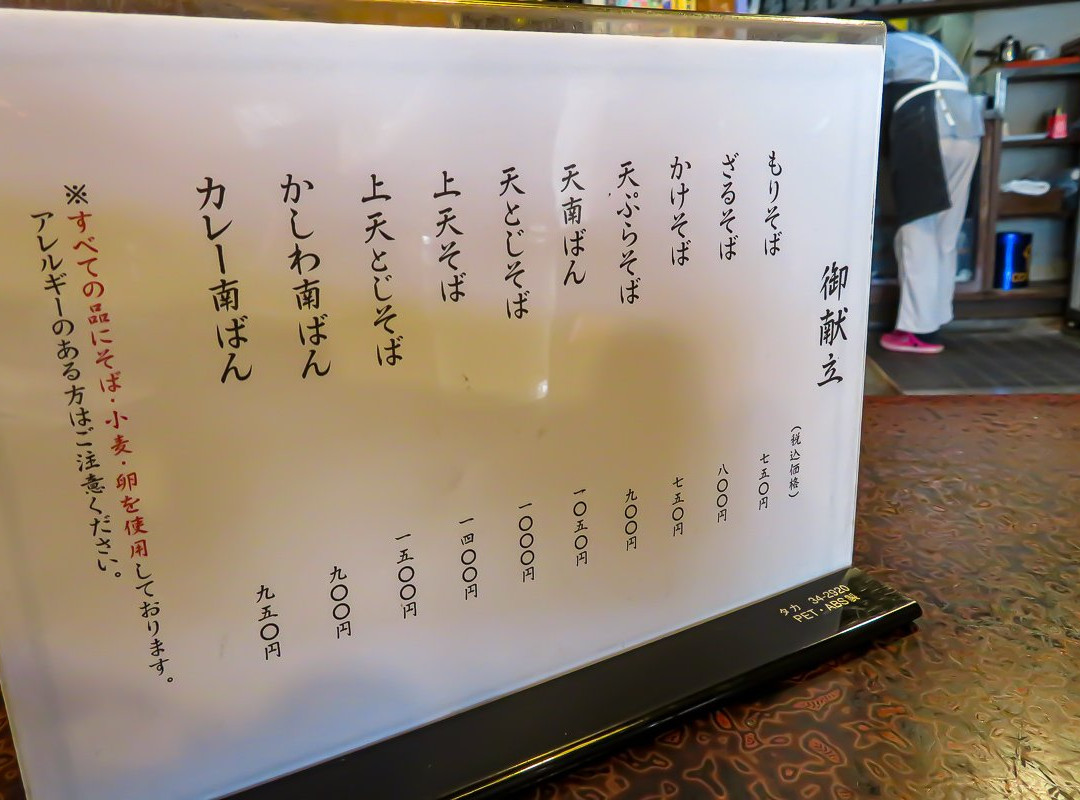 御献立
(税込価格)
もりそば 七五〇円
ざるそば 八〇〇円
かけそば 七五〇円
天ぷらそば 九〇〇円
天南ばん 一〇五〇円
天とじそば 一〇〇〇円
上天そば 一四〇〇円
上天とじそば 一五〇〇円
かしわ南ばん 九〇〇円
カレー南ばん 九五〇円
※すべての品にそば・小麦・卵を使用しております。
アレルギーのある方はご注意ください。
タカ 34-2920
PET・ABS製